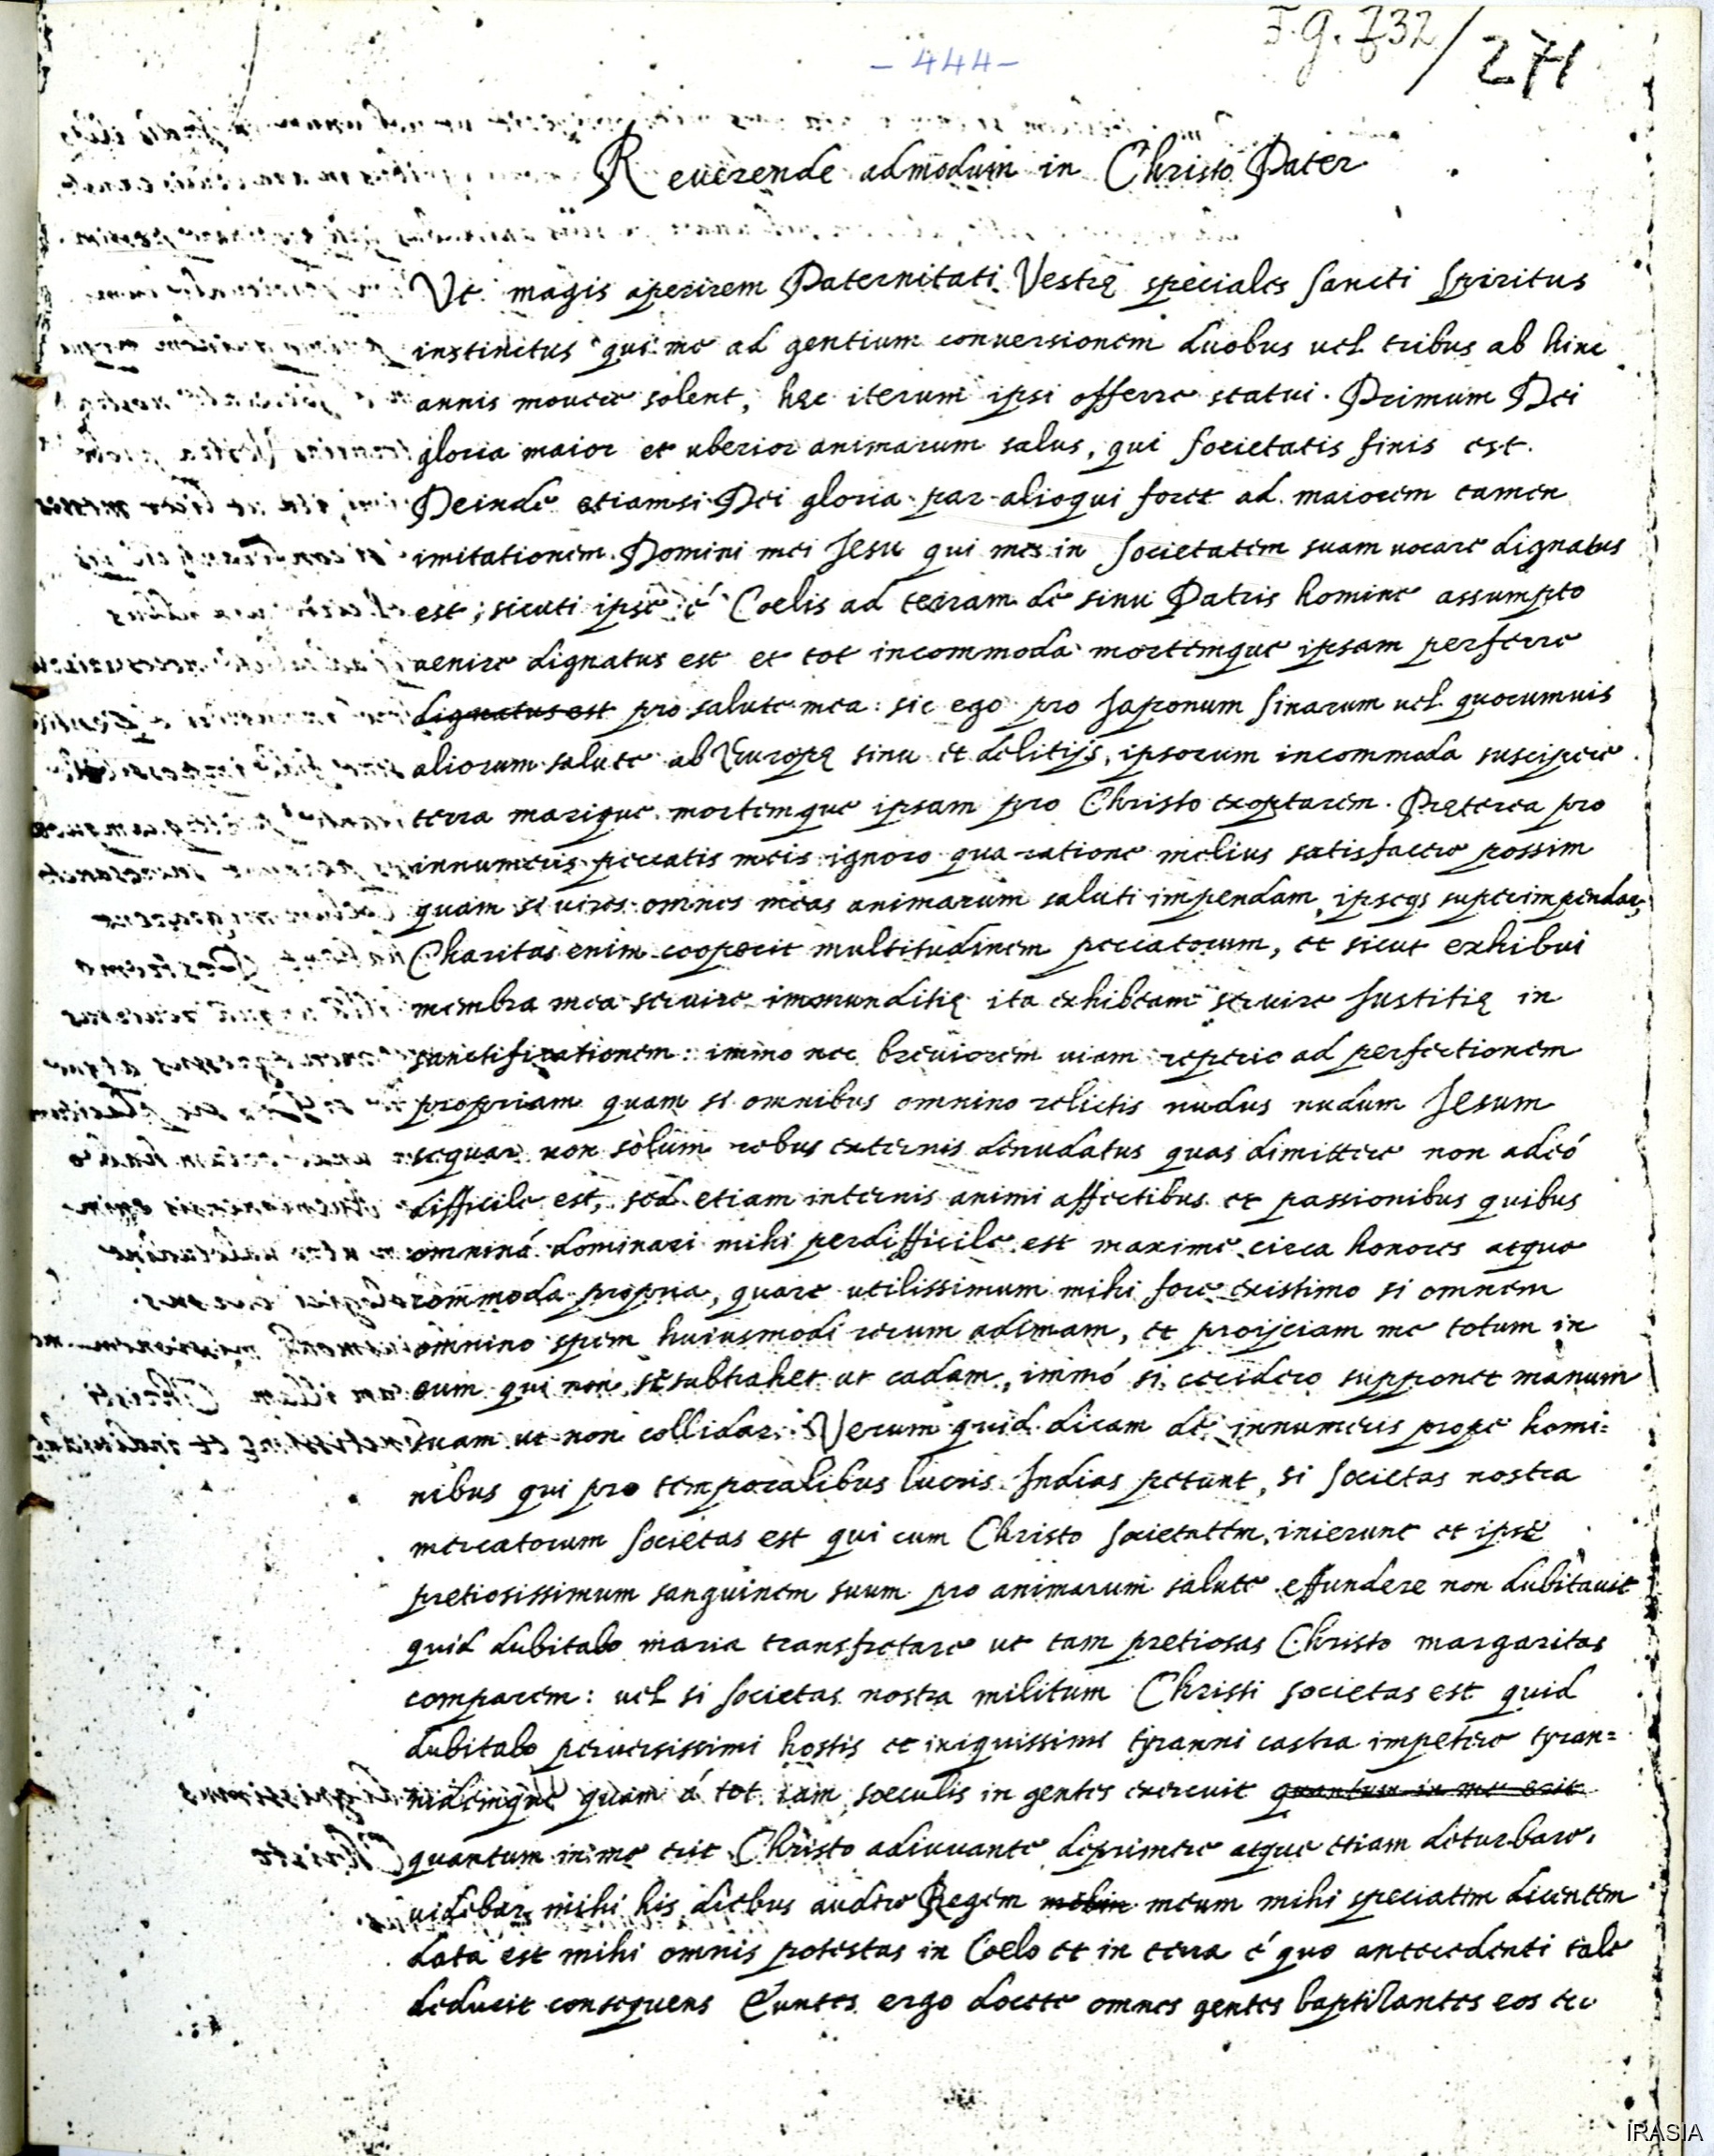 - 444 -
F.G. 732 / 271
Reuerende admodum in Christo Pater
Vt magis aperirem Paternitati Vestrę speciales sancti spiritus
instinctus qui me ad gentium conuersionem duobus uel tribus ab hinc
annis mouere solent, hęc iterum ipsi offerre statui. Primum Dei
gloria maior et uberior animarum salus, qui societatis finis est.
Deinde etiamsi Dei gloria par alioqui foret ad maiorem tamen
imitationem Domini mei Jesu qui me in societatem suam uocare dignatus
est, sicuti ipse é Coelis ad terram de sinu Patris homine assumpto
uenire dignatus est et tot incommoda mortemque ipsam perferre
dignatus est pro salute mea: sic ego pro Japonum Sinarum uel quorumuis
aliorum salute ab Europę sinu et delitijs, ipsorum incommoda suscipere
terra marique mortemque ipsam pro Christo exoptarem. Pręterea pro
innumeris peccatis meis ignoro qua ratione melius satisfacere possim
quam si uires omnes meas animarum saluti impendam, ipseq3 superimpendar,
Charitas enim cooperit multitudinem peccatorum, et sicut exhibui
membra mea seruire immunditię ita exhibeam seruire Justitię in
sanctificationem: immo nec breuiorem uiam reperio ad perfectionem
propriam quam si omnibus omnino relictis nudus nudum Jesum
sequar non sòlum rebus externis denudatus quas dimittere non adeó
difficile est, sed etiam internis animi affectibus et passionibus quibus
omninó dominari mihi perdifficile est maxime circa honores atque
commoda propria, quare utilissimum mihi fore existimo si omnem
omnino spem huiusmodi rerum adimam, et proijciam me totum in
eum qui non se subtrahet ut cadam, immó si cecidero supponet manum
suam ut non collidar. Verum quid dicam de innumeris prope homi=
nibus qui pro temporalibus lucris Indias petunt, si societas nostra
mercatorum societas est qui cum Christo societatem inierunt et ipse
pretiosissimum sanguinem suum pro animarum salute effundere non dubitauit
quid dubitabo maria transfretare ut tam pretiosas Christo margaritas
comparem: uel si societas nostra militum Christi societas est quid
dubitabo peruersissimi hostis et iniquissimi tyranni castra impetere tyran=
nidemque quam á tot iam soeculis in gentes exercuit quantum in me erit
quantum in me erit Christo adiuuante deprimere atque etiam deturbare.
uidebar mihi his diebus audire Regem meum mihi speciatim dicentem
data est mihi omnis potestas in Coelo et in terra é quo antecedenti tale
deducit consequens Euntes ergo docete omnes gentes baptizantes eos etc
IRASIA